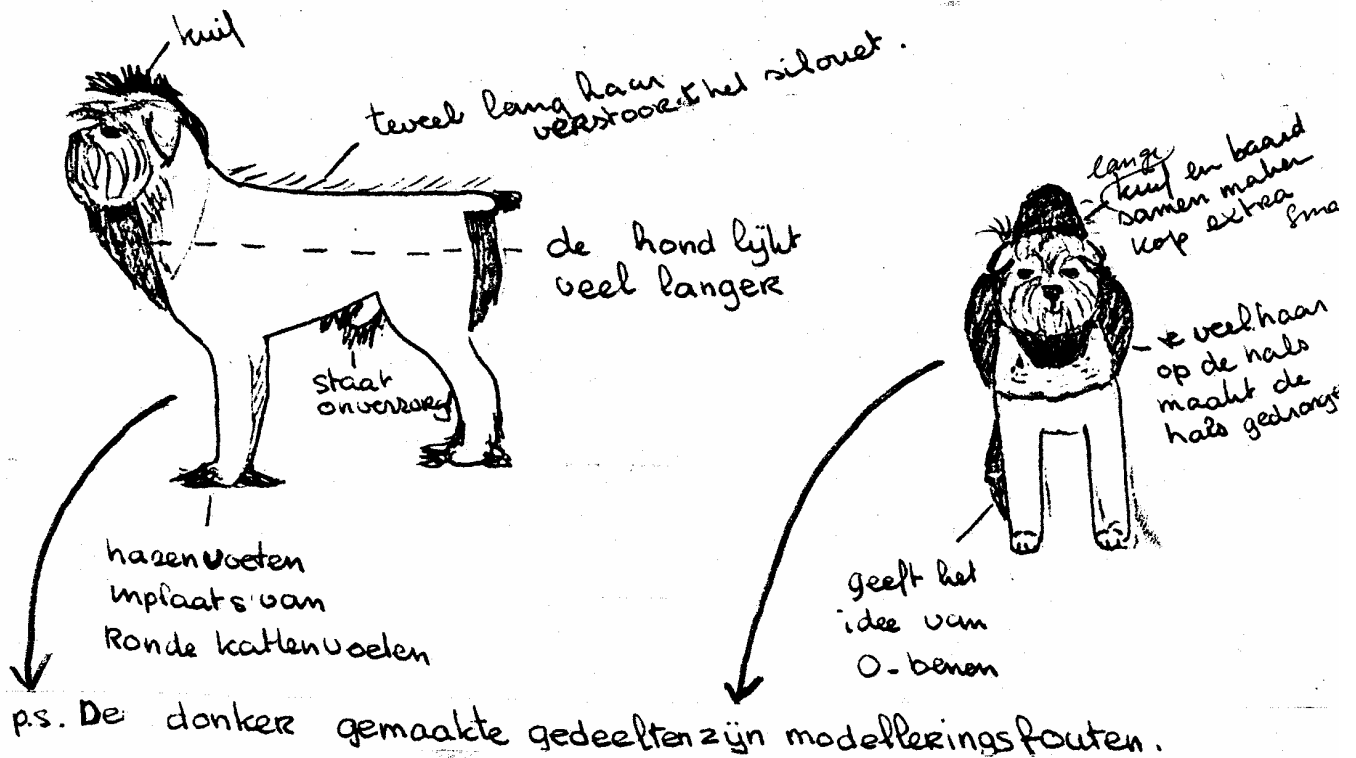 kuif
teveel lang haar
verstoort het silouet.
de hond lijkt
veel langer
staat
onverzorgd
hazenvoeten
inplaats van
Ronde kattenvoeten
lange
kuif en baard
samen maken
kop extra
sma
te veel haar
op de hals
maakt de
hals gedronge
geeft het
idee van
O-benen
p.s. De donker gemaakte gedeelten zijn modelleringsfouten.